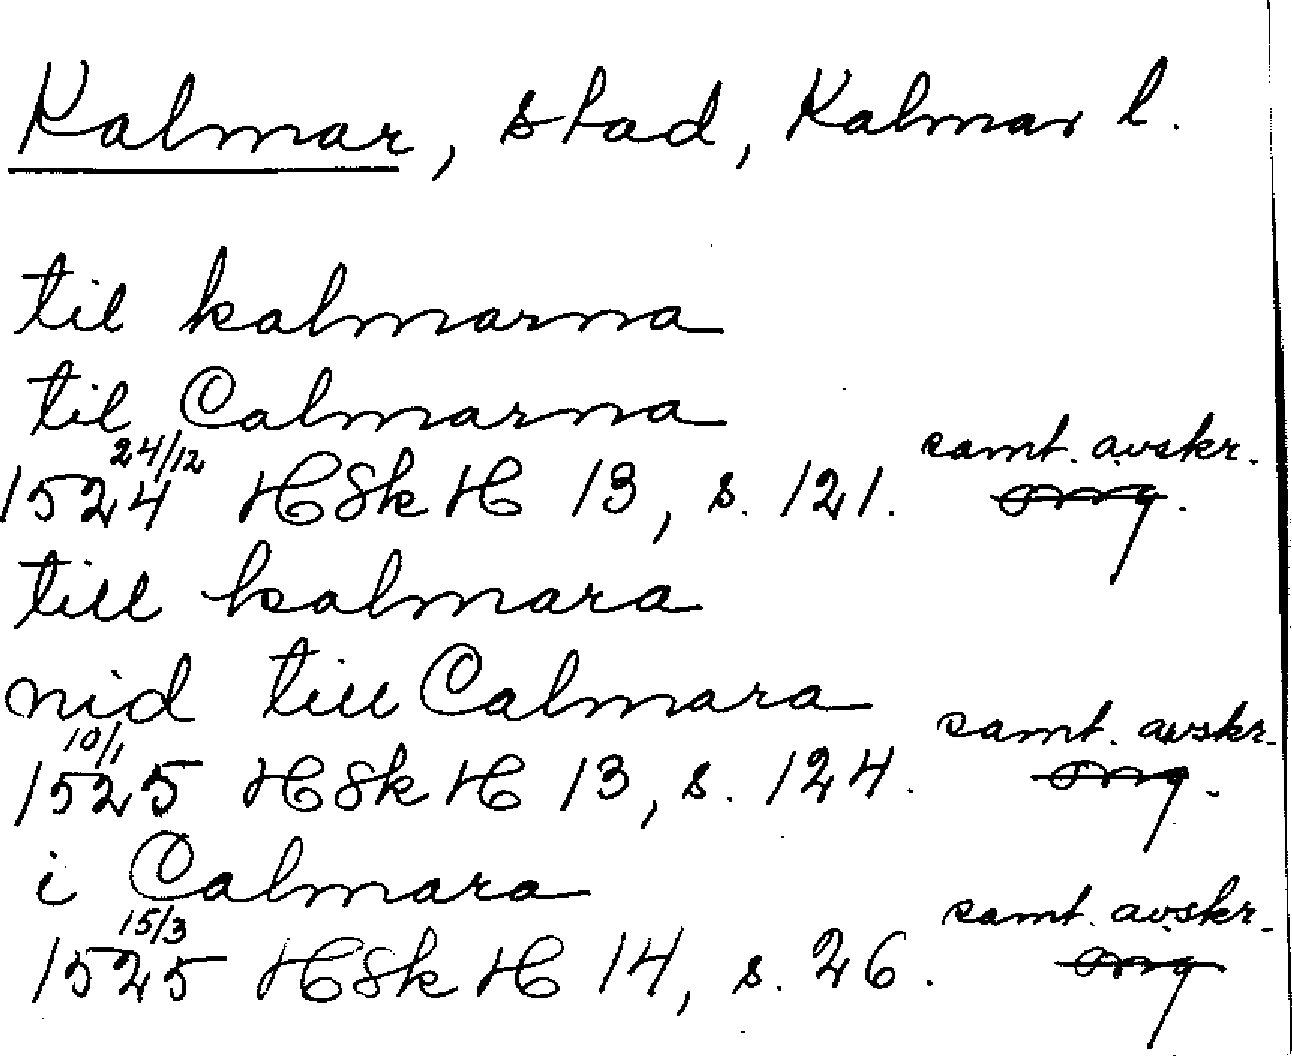 Kalmar, stad, Kalmar l.
til kalmarna
til Calmarna
1524 24/12 HSkH 13, s. 121. samt. avskr.
till kalmara
nid till Calmara
1525 10/1 HSkH 13, s. 124. samt. avskr.
i Calmara
1525 15/3 HSkH 14, s. 26. samt. avskr.